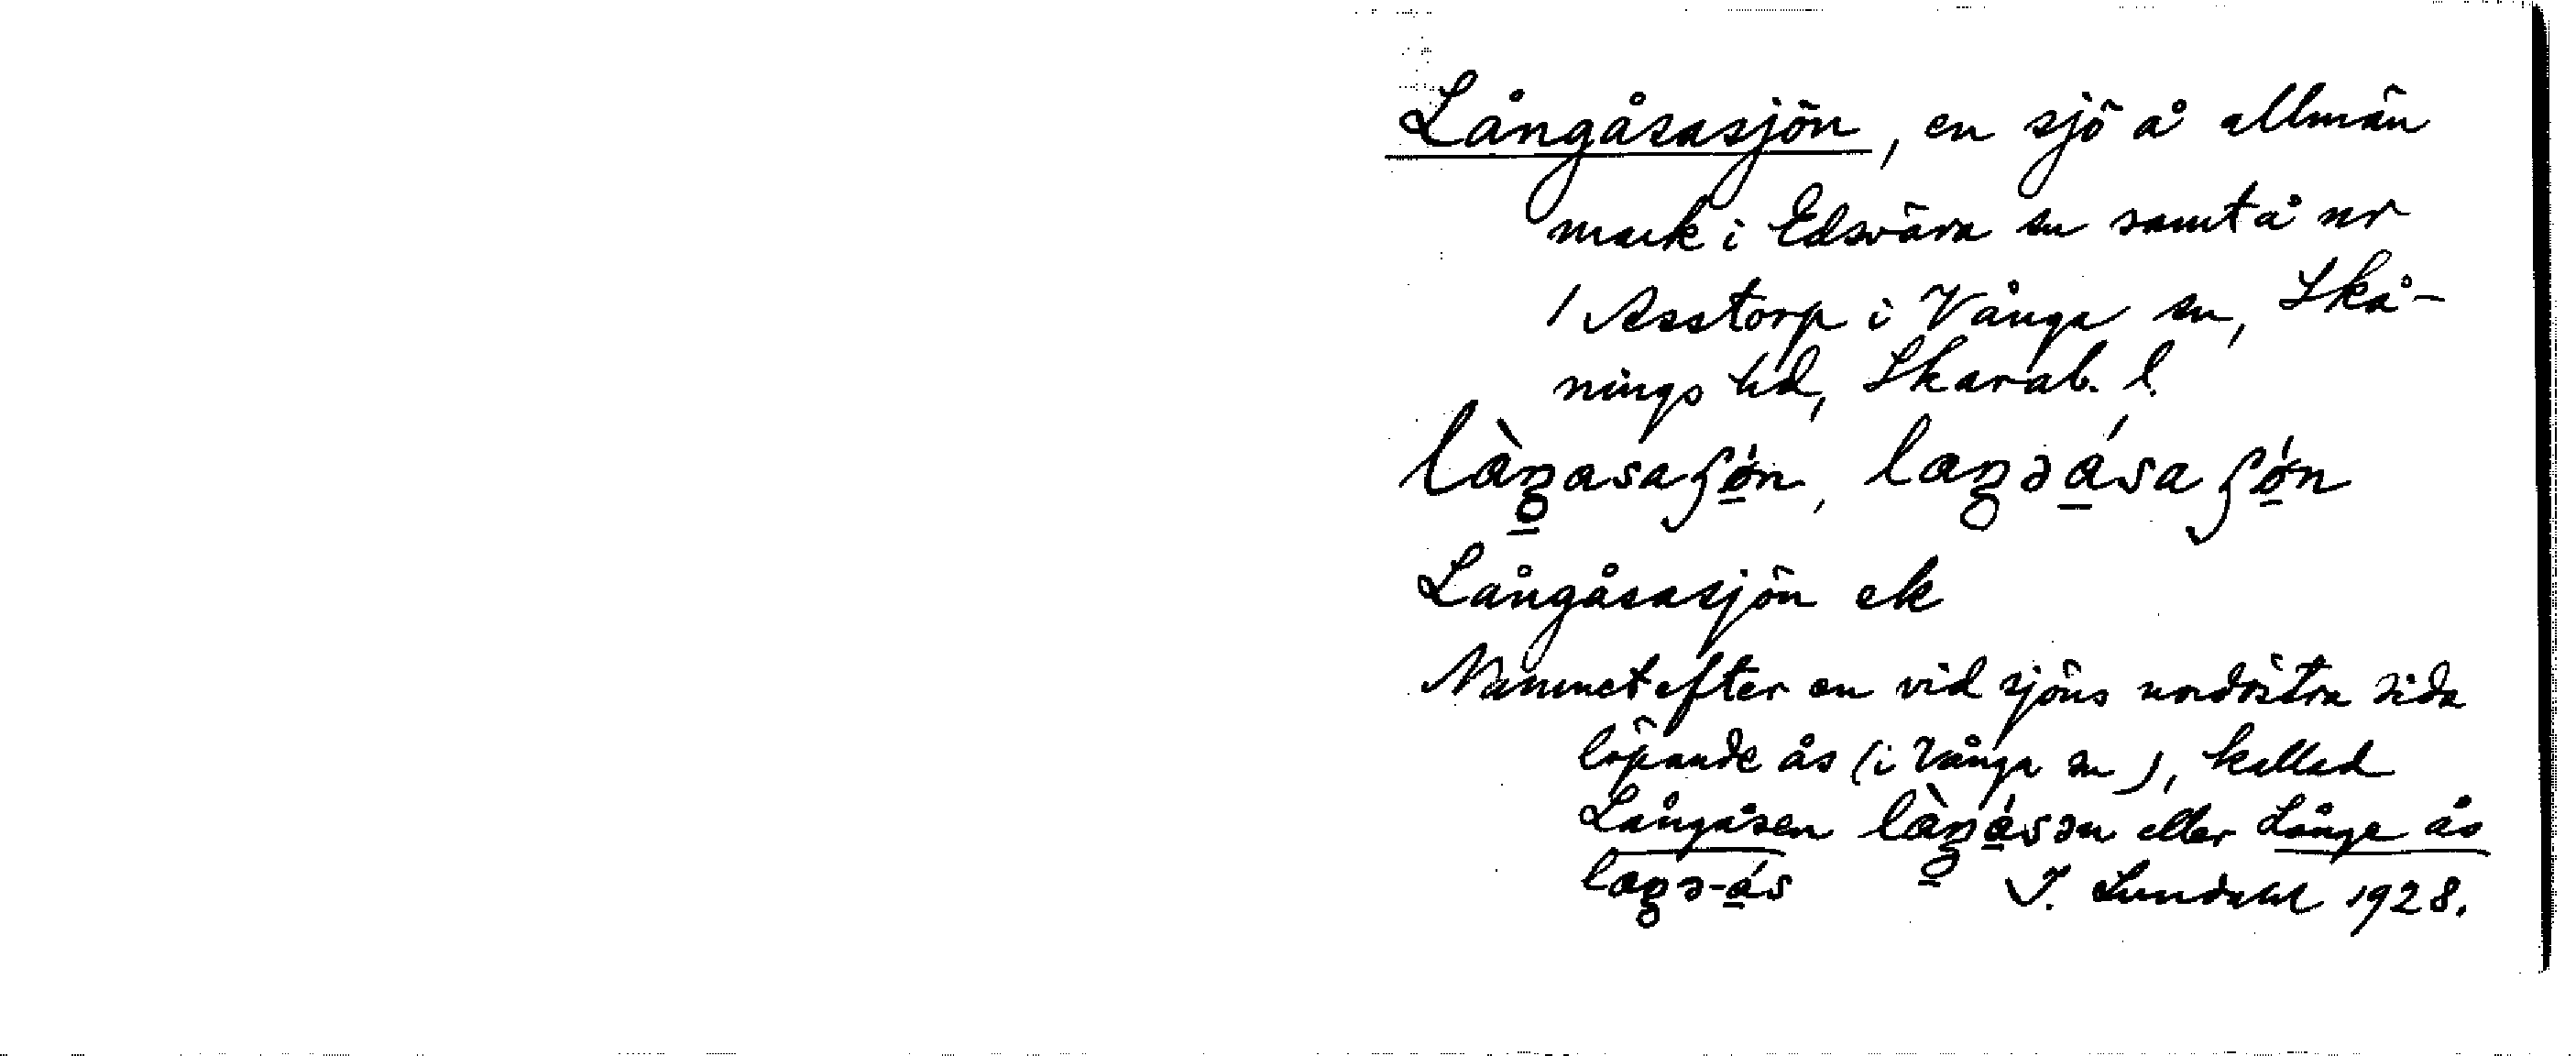 Långåsasjön, en sjö å allmän
mark i Edsvära sn samt å nr
1 Asstorp i Vånga sn, Skå-
nings hd, Skarab. l.
Långåsasjön ek
Namnet efter en vid sjöns nordöstra sida
löpande ås (i Vånga sn), kallad
Långåsen làŋásən eller Långe ås
laŋə-ás I. Lundahl 1928.